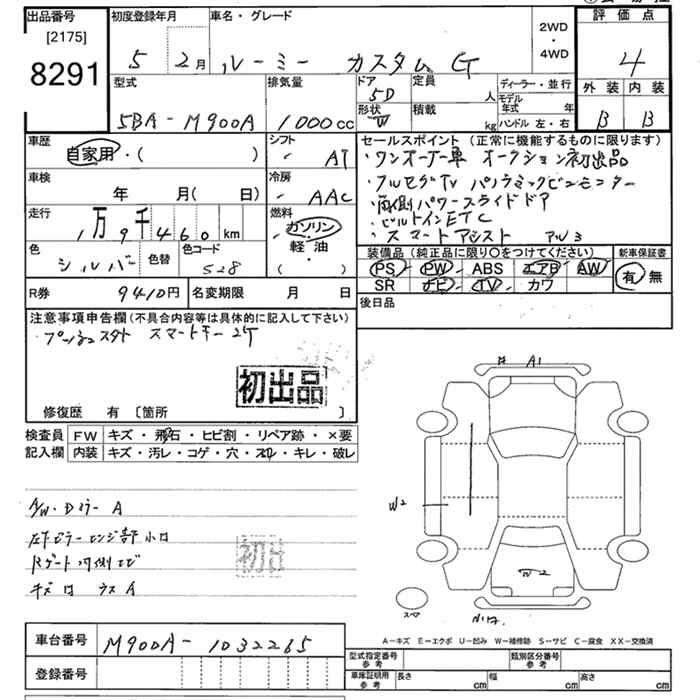 出品番号
[2175]
8291
初度登録年月
5 2月
車名・グレード
ルーミー カスタム G
2WD
・
4WD
評価点
4
外装 内装
B B
型式
5BA-M900A
排気量
1000cc
ドア
5D
形状
W
定員
人
積載
kg
ディーラー・並行
モデル
年式 年
ハンドル 左・右
車歴
自家用・( )
シフト
AT
車検
年 月( 日)
冷房
AAC
走行
1万9千460km
燃料
ガソリン
軽油
( )
色
シルバー
色替
色コード
S28
セールスポイント (正常に機能するものに限ります)
・ワンオーナー車 オークション初出品
・フルセグTV パノラミックビューモニター
・両側パワースライドドア
・ビルトインETC
・スマートアシスト アルミ
装備品 (純正品に限り○をつけてください)
PS PW ABS エアB AW
SR ナビ TV カワ
新車保証書
有 無
R券
9410円
名変期限 月 日
後日品
注意事項申告欄 (不具合内容等は具体的に記入して下さい)
プッシュスタート スマートキー2ケ
初出品
修復歴 有 〔箇所 〕
検査員
記入欄
FW キズ・飛石・ヒビ割・リペア跡・×要
内装 キズ・汚レ・コゲ・穴・スレ・キレ・破レ
A/W・Dミラー A
初出
キズ
A1
W2
W2
スペア
A-キズ E-エクボ U-凹み W-補修跡 S-サビ C-腐食 XX-交換済
車台番号
M900A-1032265
登録番号
型式指定番号
参考
類別区分番号
参考
車庫証明用
参考
長さ cm
幅 cm
高さ cm